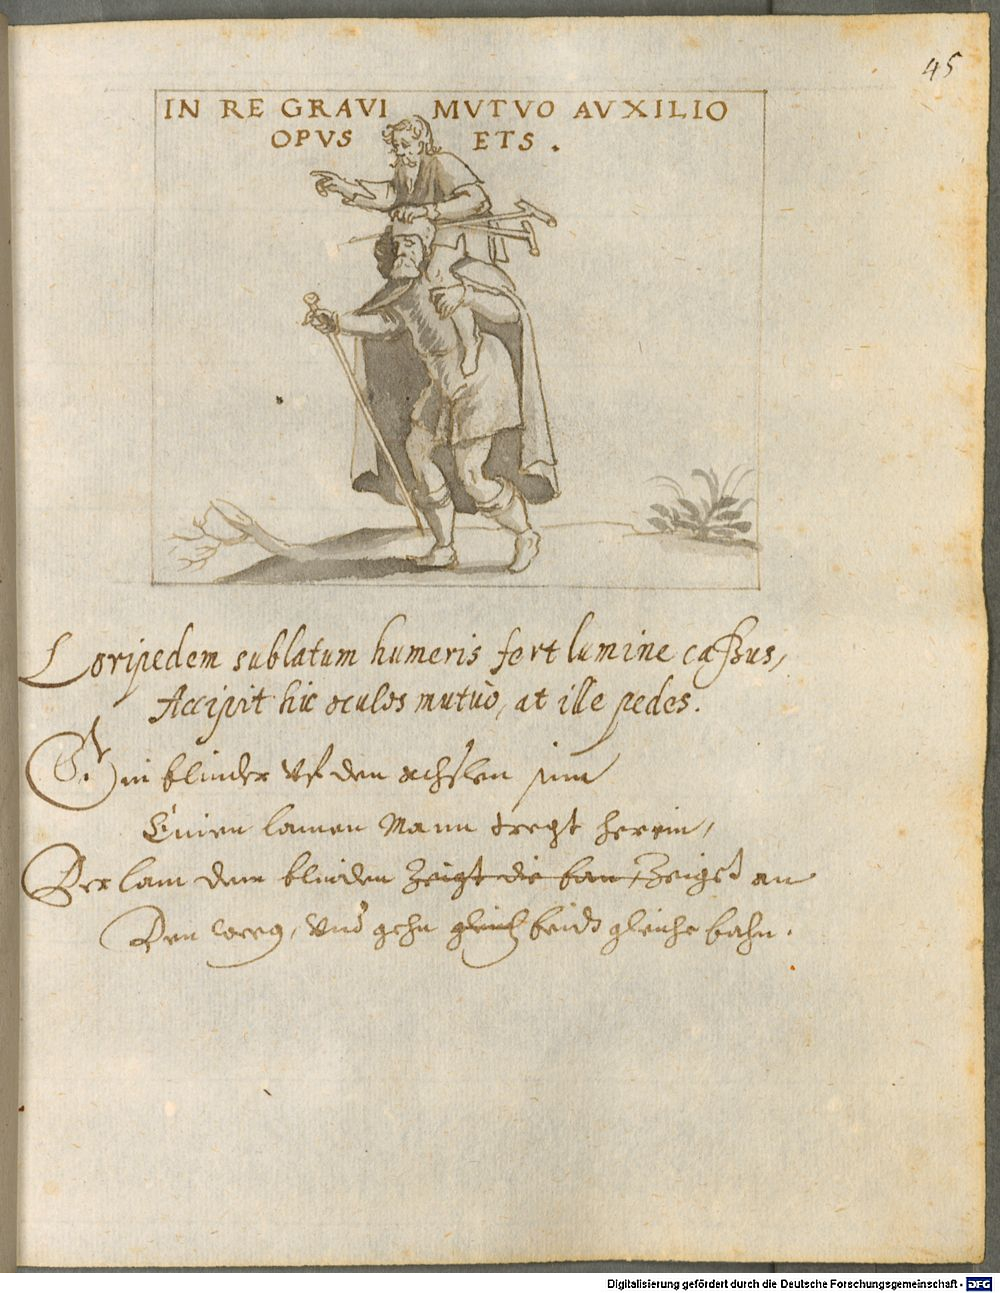 45
IN RE GRAVI MVTVO AVXILIO
OPVS ETS.
Loripedem sublatum humeris fert lumine caßus,
Accipit hic oculos mutuò, at ille pedes.
Ein blinder vf den achslen sein
Einen lamen Mann tregt herein,
Der lam dem blinden zeigt die ban, Zeiget an
Den weeg, vnd gehn gleich beide gleiche bahn.
Digitalisierung gefördert durch die Deutsche Forschungsgemeinschaft - DFG